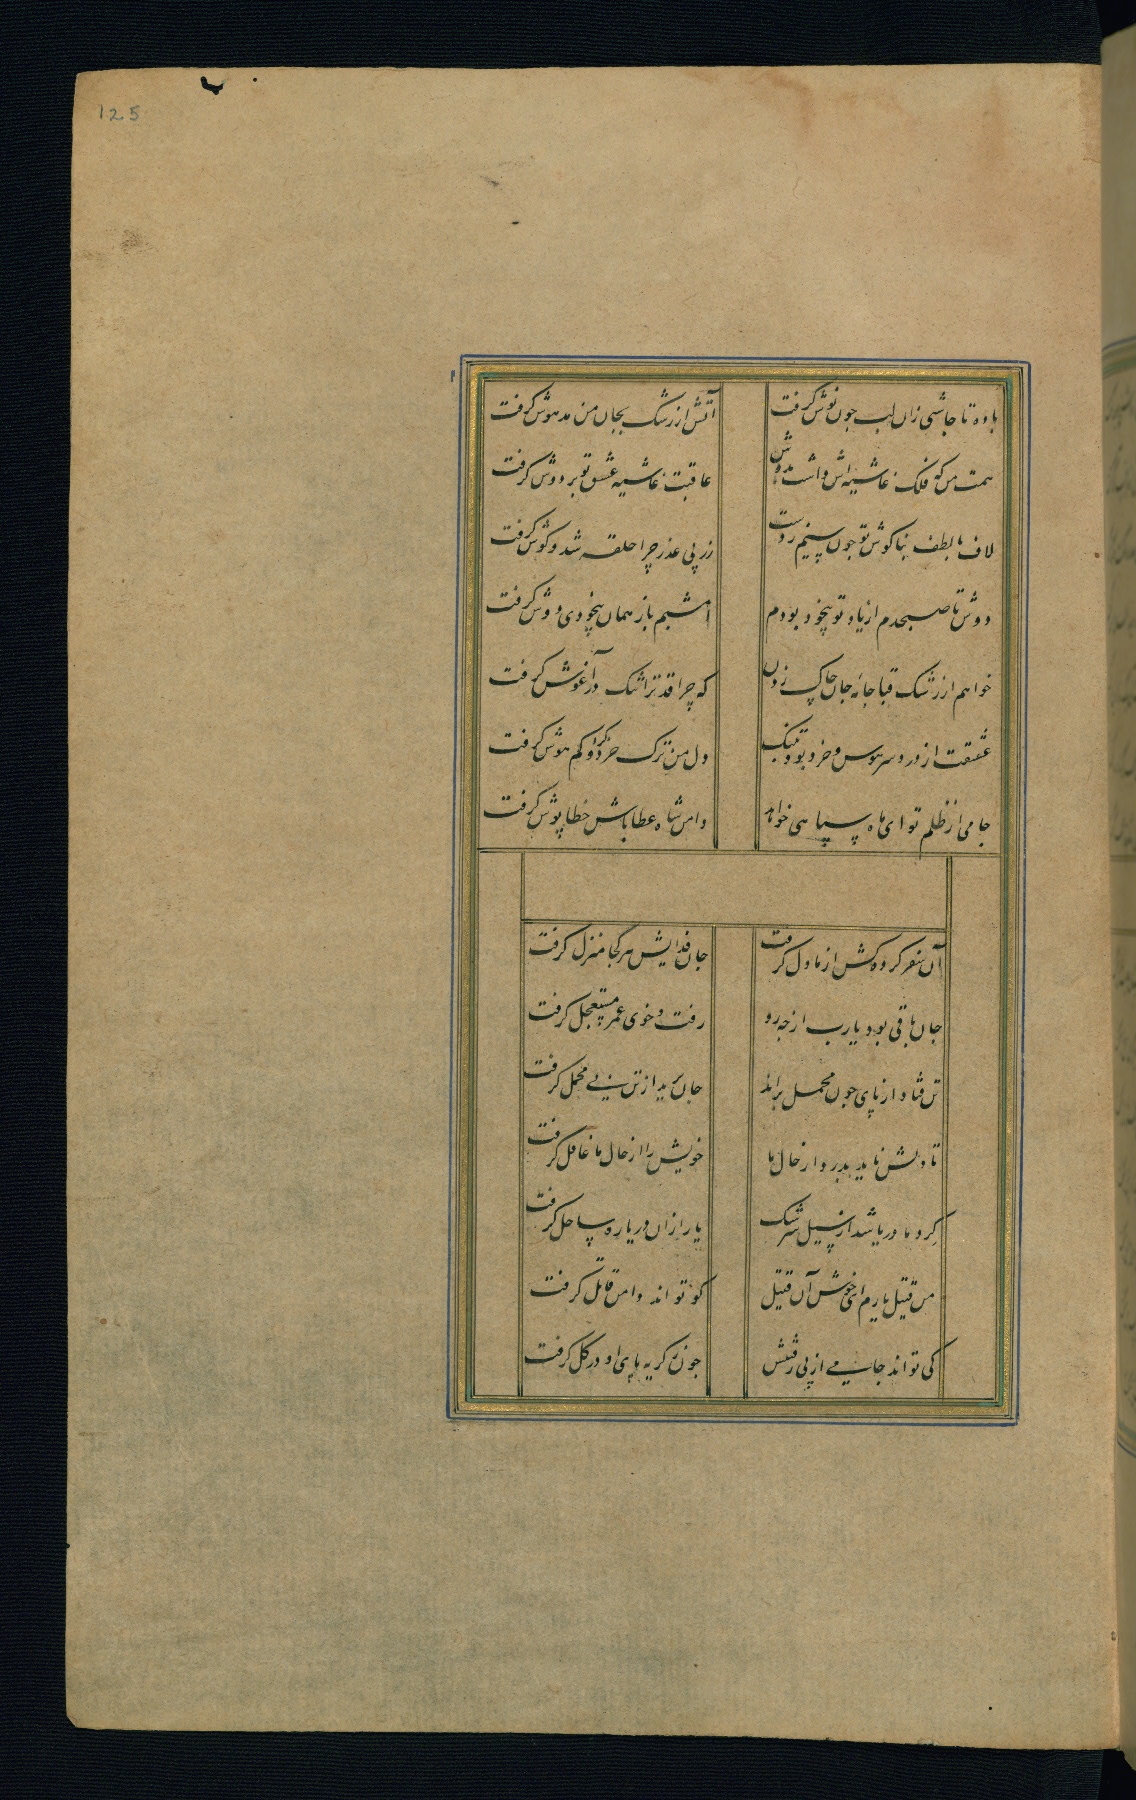 125
باده تا چاشنی زان لب چون نوش گرفت
آتش از رشک بجان من مدهوش گرفت
همت من که فلک غاشیه اش داشت بدوش
عاقبت غاشیه عشق تو بر دوش گرفت
لاف با لطف بناکوش تو چون سیم
زر پی عذر چرا حلقه شد و گوش گرفت
دوش تا صبحدم از یاد تو بیخود بودم
امشبم باز همان بیخودی دوش گرفت
خواهم از رشک قبا جامه جان چاک زدن
که چرا قد ترا تنک در آغوش گرفت
عشقت از در و سر هوش و خرد بود تنک
دل من ترک خرد کرد و کم هوش گرفت
جامی از ظلم تو ای ماه سپاهی خواهد
دامن شاه عطاباش خطاپوش گرفت
آن سفر کرده کش از ما دل گرفت
جان فدایش هر کجا منزل گرفت
جان باقی بود یارب از چه رو
رفت و خوی عمر مستعجل گرفت
تن فتاد از پای چون محمل براند
جان برید از تن پی محمل گرفت
تا دلش ناید بدرد از حال ما
خویش را از حال ما غافل گرفت
کرد ما دریا شد از سیل سرشک
یار ازان دریا ره ساحل گرفت
من قتیل یارم ای خوش آن قتیل
کو تواند دامن قاتل گرفت
کی تواند جامی از پی رفتنش
چون ز گریه پای او در گل گرفت